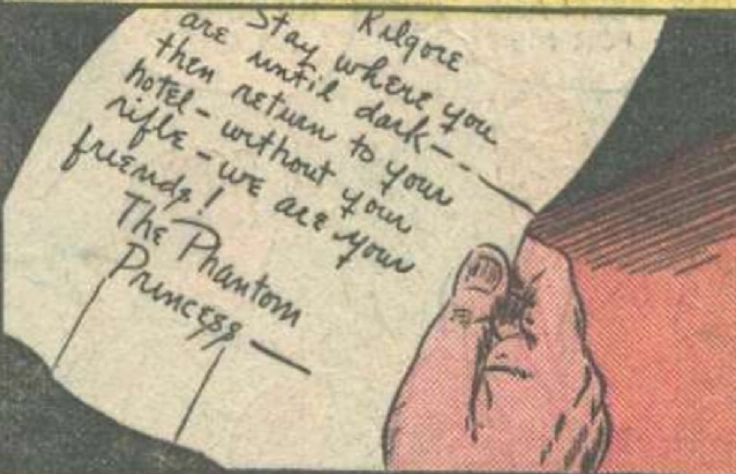 Kilgore
Stay where you
are until dark--
then return to your
hotel - without your
rifle - we are your
friends!
The Phantom
Princess —